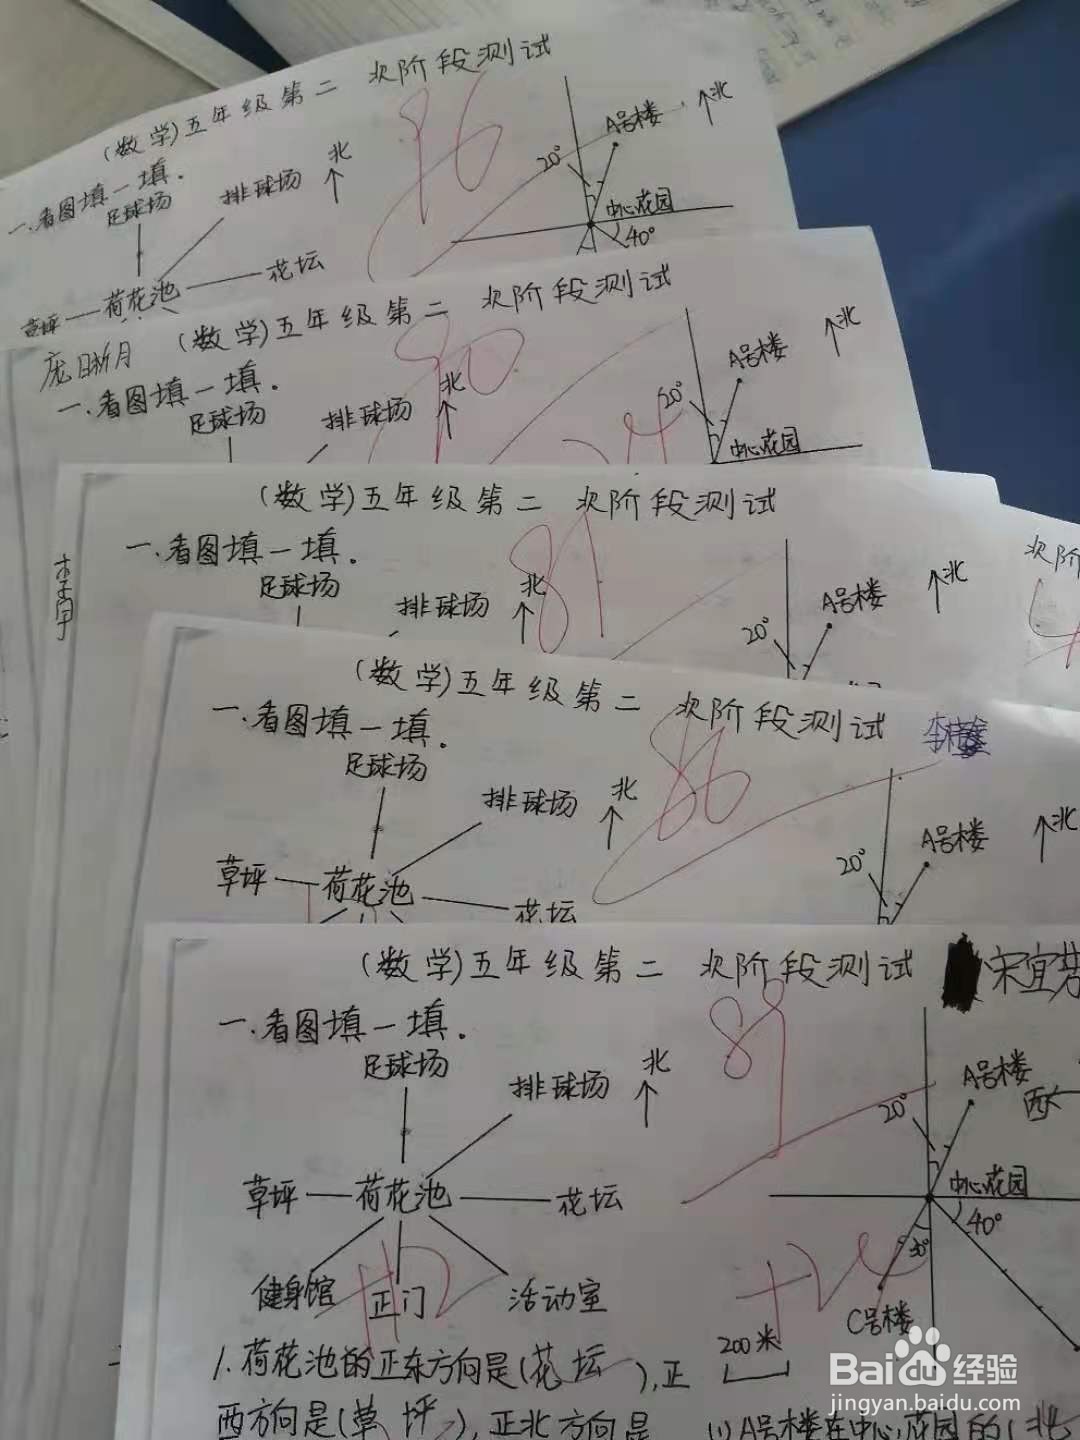 (数学)五年级第二 次阶段测试
96
一.看图填一填.
足球场 排球场 北
草坪 荷花池 花坛
20° A号楼 北
中心花园
40°
庞晰月 (数学)五年级第二 次阶段测试
90
一.看图填一填.
足球场 排球场 北
20° A号楼 北
中心花园
(数学)五年级第二 次阶段测试
81
一.看图填一填.
足球场 排球场 北
20° A号楼 北
次阶
(数学)五年级第二 次阶段测试
86
一.看图填一填.
足球场 排球场 北
草坪 荷花池 花坛
20° A号楼 北
(数学)五年级第二 次阶段测试 宋宜
89
一.看图填一填.
足球场 排球场 北
草坪 荷花池 花坛
健身馆 正门 活动室
+12
20° A号楼 西
中心花园
40°
30°
C号楼
200米
1.荷花池的正东方向是(花坛),正
西方向是(草坪),正北方向是
(1)A号楼在中心花园的(北
Baidu经验
jingyan.baidu.com